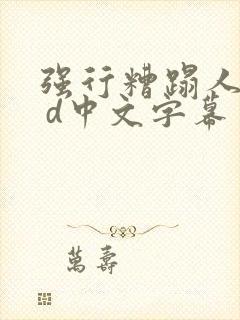 强行糟蹋人
d中文字幕
萬壽